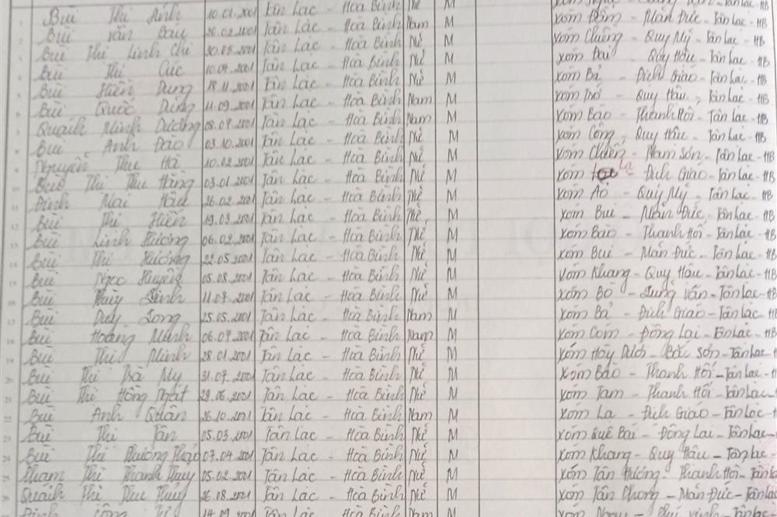 Bùi Thị Anh 10.01.2001 Tân Lạc - Hoà Bình Nữ M
Bùi Văn 20.02.2001 Tân Lạc - Hoà Bình Nam M Xóm Đầm - Mãn Đức - Tân Lạc - HB
Bùi Thị Linh Chi 30.05.2001 Tân Lạc - Hoà Bình Nữ M Xóm Chiềng - Quy Mỹ - Tân Lạc - HB
Bùi Thị Cúc 10.04.2001 Tân Lạc - Hoà Bình Nữ M Xóm Đai - Quy Hậu - Tân Lạc - HB
Bùi Hiền Dung 18.11.2001 Tân Lạc - Hoà Bình Nữ M Xóm Bả - Địch Giáo - Tân Lạc - HB
Bùi Quốc 11.09.2001 Tân Lạc - Hoà Bình Nam M Xóm - Quy Hậu - Tân Lạc - HB
Quách Minh Dương 2001 Tân Lạc - Hoà Bình Nam M Xóm Bào - Thanh Hối - Tân Lạc - HB
Bùi Anh Đào 03.10.2001 Tân Lạc - Hoà Bình Nữ M Xóm Cộng - Quy Hậu - Tân Lạc - HB
Nguyễn Thu Hà 10.02.2001 Tân Lạc - Hoà Bình Nữ M Xóm Chiến - Nam Sơn - Tân Lạc - HB
Bùi Thị Thu Hằng 03.01.2001 Tân Lạc - Hoà Bình Nữ M Xóm - Địch Giáo - Tân Lạc - HB
Đinh Mai 26.02.2001 Tân Lạc - Hoà Bình Nữ M Xóm Áo - Quy Mỹ - Tân Lạc - HB
Bùi Thị Hiền 19.03.2001 Tân Lạc - Hoà Bình Nữ M Xóm Bui - Mãn Đức - Tân Lạc - HB
Bùi Linh Hương 06.02.2001 Tân Lạc - Hoà Bình Nữ M Xóm Bào - Thanh Hối - Tân Lạc - HB
Bùi Thị Hương 22.05.2001 Tân Lạc - Hoà Bình Nữ M Xóm Bui - Mãn Đức - Tân Lạc - HB
Bùi Ngọc Huyền 05.08.2001 Tân Lạc - Hoà Bình Nữ M Xóm Khang - Quy Hậu - Tân Lạc - HB
Bùi Thùy Linh 11.07.2001 Tân Lạc - Hoà Bình Nữ M Xóm Bo - Lũng Vân - Tân Lạc - HB
Bùi Duy Long 25.05.2001 Tân Lạc - Hoà Bình Nam M Xóm Bả - Địch Giáo - Tân Lạc - HB
Bùi Hoàng Minh 06.09.2001 Tân Lạc - Hoà Bình Nam M Xóm Cóm - Đông Lai - Tân Lạc - HB
Bùi Thị Minh 28.01.2001 Tân Lạc - Hoà Bình Nữ M Xóm Hày - Bắc Sơn - Tân Lạc - HB
Bùi Thị Trà My 31.07.2001 Tân Lạc - Hoà Bình Nữ M Xóm Bào - Thanh Hối - Tân Lạc - HB
Bùi Thị Hồng 29.06.2001 Tân Lạc - Hoà Bình Nữ M Xóm Tam - Thanh Hối - Tân Lạc - HB
Bùi Anh Quân 26.10.2001 Tân Lạc - Hoà Bình Nam M Xóm La - Địch Giáo - Tân Lạc - HB
Bùi Thị Tân 05.03.2001 Tân Lạc - Hoà Bình Nữ M Xóm Quê Bái - Đông Lai - Tân Lạc - HB
Bùi Thị Phương Thảo 07.04.2001 Tân Lạc - Hoà Bình Nữ M Xóm Khang - Quy Hậu - Tân Lạc - HB
Phạm Thị Thanh Thủy 05.02.2001 Tân Lạc - Hoà Bình Nữ M Xóm Tân Hương - Thanh Hối - Tân Lạc
Quách Thị Thu Thủy 26.08.2001 Tân Lạc - Hoà Bình Nữ M Xóm Tân Phong - Mãn Đức - Tân Lạc
Tân Lạc - Hoà Bình Nam M